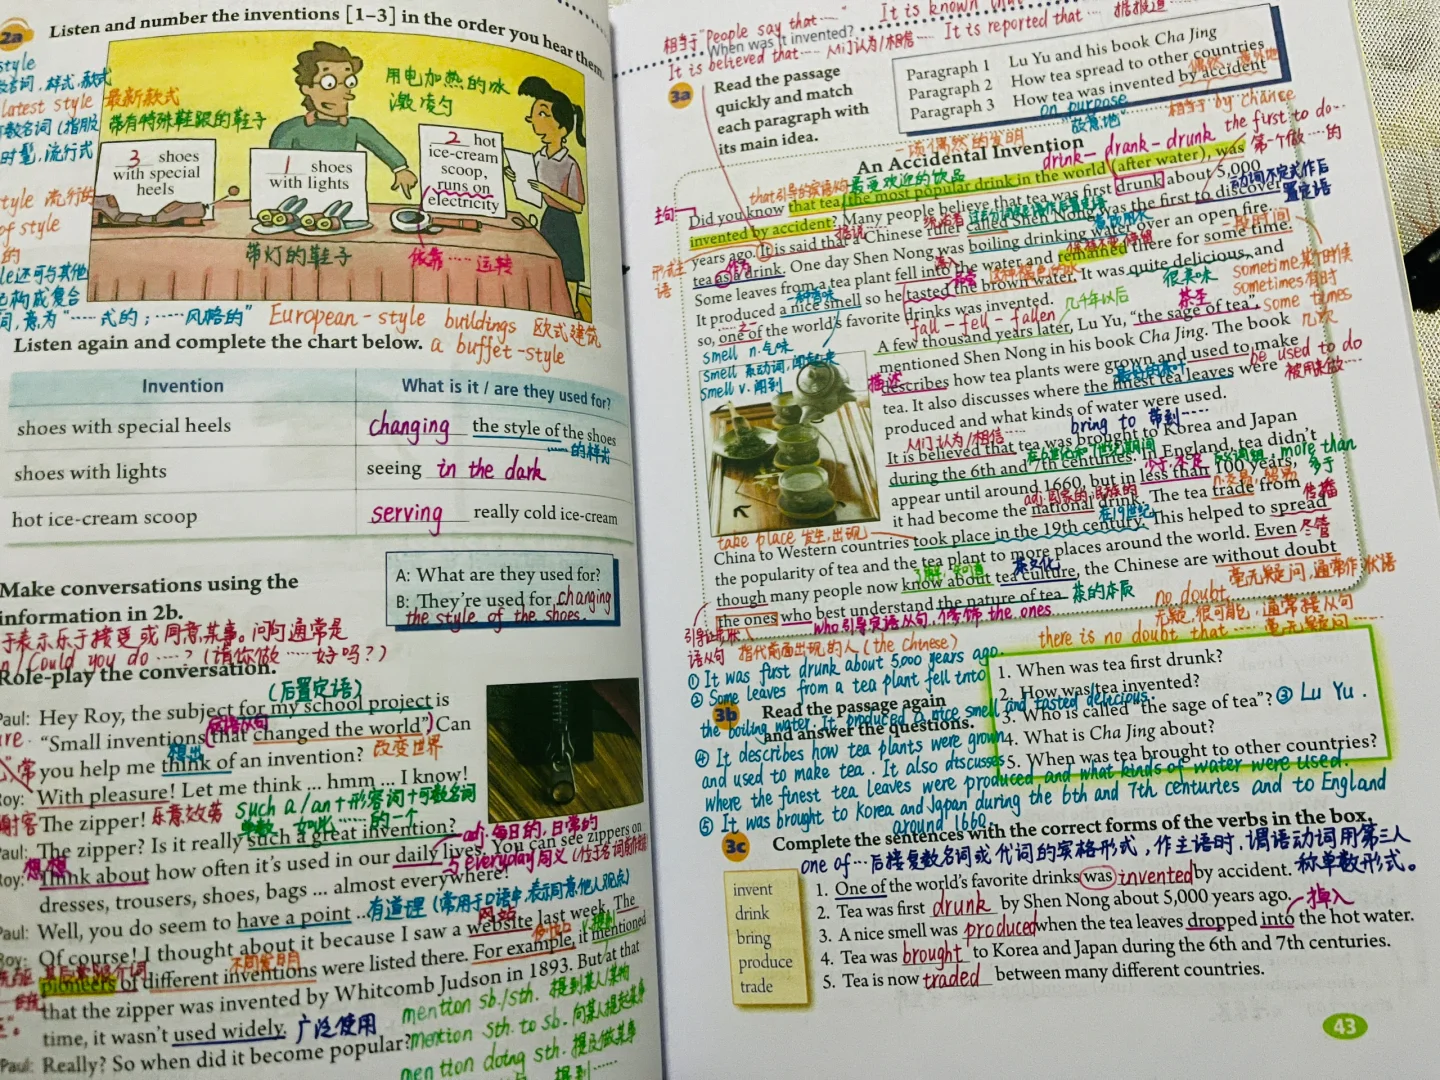 2a
Listen and number the inventions [1–3] in the order you hear them.
style
样式,款式
latest style 最新款式
带有特殊鞋跟的鞋子
时髦,流行式
style 流行的
of style
用电加热的冰
激凌勺
3 shoes
with special
heels
1 shoes
with lights
2 hot
ice-cream
scoop,
runs on
electricity
带灯的鞋子
依靠……运转
构成复合
词,意为“……式的;……风格的” European-style buildings 欧式建筑
a buffet-style
Listen again and complete the chart below.
Invention What is it / are they used for?
shoes with special heels changing the style of the shoes
……的样式
shoes with lights seeing in the dark
hot ice-cream scoop serving really cold ice-cream
Make conversations using the
information in 2b.
A: What are they used for?
B: They're used for changing
the style of the shoes.
于表示乐于接受或同意某事。问句通常是
n/Could you do ……? (请你做……好吗?)
Role-play the conversation.
(后置定语)
Paul: Hey Roy, the subject for my school project is
“Small inventions that changed the world”) Can
想出 改变世界
you help me think of an invention?
Roy: With pleasure! Let me think ... hmm ... I know!
The zipper! 乐意效劳 such a/an+形容词+可数名词
单数
Paul: The zipper? Is it really such a great invention?
adj. 每日的,日常的
想想
Roy: Think about how often it's used in our daily lives. You can see zippers on
与everyday同义
dresses, trousers, shoes, bags ... almost everywhere!
Paul: Well, you do seem to have a point ... 有道理(常用于口语中,表示同意他人观点)
网站
Roy: Of course! I thought about it because I saw a website last week. The
不同发明
pioneers of different inventions were listed there. For example, it mentioned
that the zipper was invented by Whitcomb Judson in 1893. But at that
time, it wasn't used widely. 广泛使用
mention sb./sth. 提到某人/某物
Paul: Really? So when did it become popular?
mention sth. to sb. 向某人提起某事
mention doing sth. 提及做某事
提到……
相当于“People say that……” It is known
When was it invented? It is reported that …… 据报道
It is believed that …… 人们认为/相信……
3a
Read the passage
quickly and match
each paragraph with
its main idea.
Paragraph 1 Lu Yu and his book Cha Jing
Paragraph 2 How tea spread to other countries
Paragraph 3 How tea was invented by accident
on purpose
“故意地”
相当于by chance
一项偶然的发明
An Accidental Invention
drink-drank-drunk the first to do… 第一个做……的
that引导的宾语从句 最受欢迎的饮品
动词不定式作后
置定语
主句
Did you know that tea, the most popular drink in the world (after water), was
invented by accident? Many people believe that tea was first drunk about 5,000
years ago. It is said that a Chinese ruler called Shen Nong was the first to discover
形式主语
tea as a drink. One day Shen Nong was boiling drinking water over an open fire.
Some leaves from a tea plant fell into the water and remained there for some time.
It produced a nice smell so he tasted the brown water. It was quite delicious, and
so, one of the world's favorite drinks was invented.
一段时间
sometime 某时候
sometimes 有时
some times
几次
很美味
几千年以后
茶圣
fall-fell-fallen
smell n. 气味
smell 系动词, 闻起来
smell v. 闻到
A few thousand years later, Lu Yu, “the sage of tea”,
mentioned Shen Nong in his book Cha Jing. The book
描述
describes how tea plants were grown and used to make
be used to do
被用来做……
tea. It also discusses where the finest tea leaves were
produced and what kinds of water were used.
人们认为/相信……
bring to 带到……
It is believed that tea was brought to Korea and Japan
during the 6th and 7th centuries. In England, tea didn't
appear until around 1660, but in less than 100 years,
少于,不足 more than
多于
adj. 国家的,民族的
it had become the national drink. The tea trade from
在19世纪 传播
take place 发生,出现
China to Western countries took place in the 19th century. This helped to spread
the popularity of tea and the tea plant to more places around the world. Even
尽管
了解,知道 茶文化
though many people now know about tea culture, the Chinese are without doubt
毫无疑问,通常作状语
the ones who best understand the nature of tea. 茶的本质
no doubt
无疑,很可能,通常接从句
引导让步状
语从句
who引导定语从句,修饰the ones
指代前面出现的人(the chinese)
there is no doubt that …… 毫无疑问……
3b
Read the passage again
and answer the questions.
1. When was tea first drunk?
2. How was tea invented?
3. Who is called “the sage of tea”? ③ Lu Yu.
4. What is Cha Jing about?
5. When was tea brought to other countries?
① It was first drunk about 5000 years ago.
② Some leaves from a tea plant fell into
the boiling water. It produced a nice smell and tasted delicious.
④ It describes how tea plants were grown
and used to make tea. It also discusses
where the finest tea leaves were produced and what kinds of water were used.
⑤ It was brought to Korea and Japan during the 6th and 7th centuries and to England
around 1660.
3c
Complete the sentences with the correct forms of the verbs in the box.
one of…后接复数名词或代词的宾格形式,作主语时,谓语动词用第三人
称单数形式。
invent
drink
bring
produce
trade
1. One of the world's favorite drinks was invented by accident.
2. Tea was first drunk by Shen Nong about 5,000 years ago.
掉入
3. A nice smell was produced when the tea leaves dropped into the hot water.
4. Tea was brought to Korea and Japan during the 6th and 7th centuries.
5. Tea is now traded between many different countries.
43